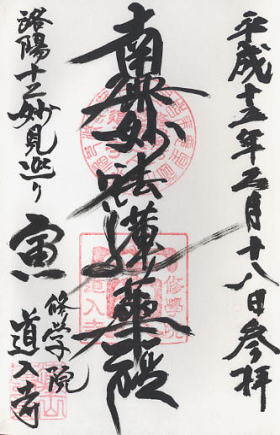 平成十五年
月十八日参拝
南無妙法蓮華経
洛陽十二妙見巡り
寅
修学院
道入寺
修學院
道入寺